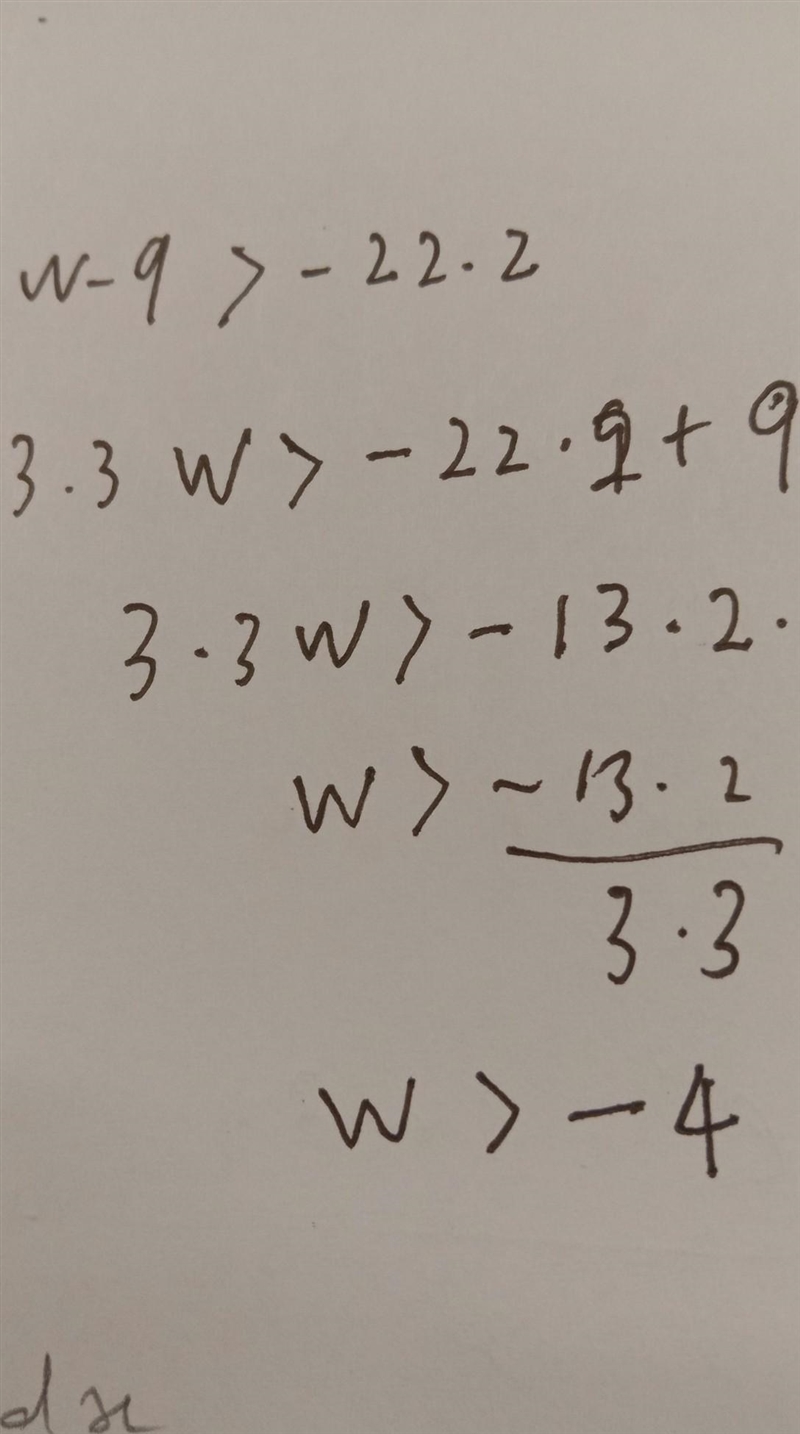 w-9 > -22.2
3.3 w > -22.2 + 9
3.3 w > -13.2.
w > -13.2
3.3
w > -4
dx